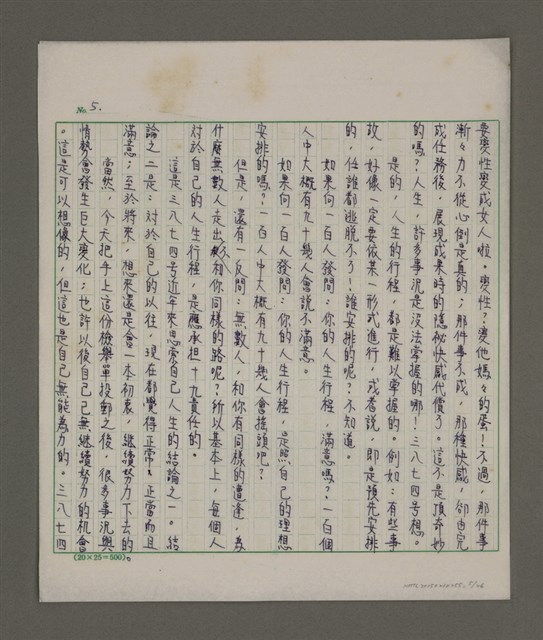 No. 5.
要變性變成女人啦。變性?變他媽々的蛋!不過,那件事
漸々力不從心倒是真的;那件事不成,那種快感,卻由完
成任務後,展現成果時的隱祕快感代償了。這不是頂奇妙
的嗎?人生,許多事況是沒法掌握的哪!三八七四号想。
是的,人生的行程,都是難以掌握的。例如:有些事
故,好像一定要依某一形式進行,或者說,即是預先安排
的,任誰都逃脫不了!誰安排的呢?不知道。
如果向一百人發問:你的人生行程,滿意嗎?一百個
人中大概有九十幾人會說不滿意。
如果向一百人發問:你的人生行程,是照自己的理想
安排的嗎?一百人中大概有九十幾人會搖頭吧?
但是,還有一反問:無數人,和你有同樣的遭逢,為
什麼無數人走出不和你同樣的路呢?所以基本上,每個人
對於自己的人生行程,是應承担十九責任的。
這是三八七四号近年來思索自己人生的結論之一。結
論之二是:對於自己的以往,現在都覺得正常、正當而且
滿意;至於將來,想來還是會一本初衷,繼續努力下去的
當然,今天把手上這份檢舉單投郵之後,很多事況與
情勢會發生巨大變化;也許以後自己已無繼續努力的機會
。這是可以想像的,但這也是自己無能為力的。三八七四
(20×25=500)